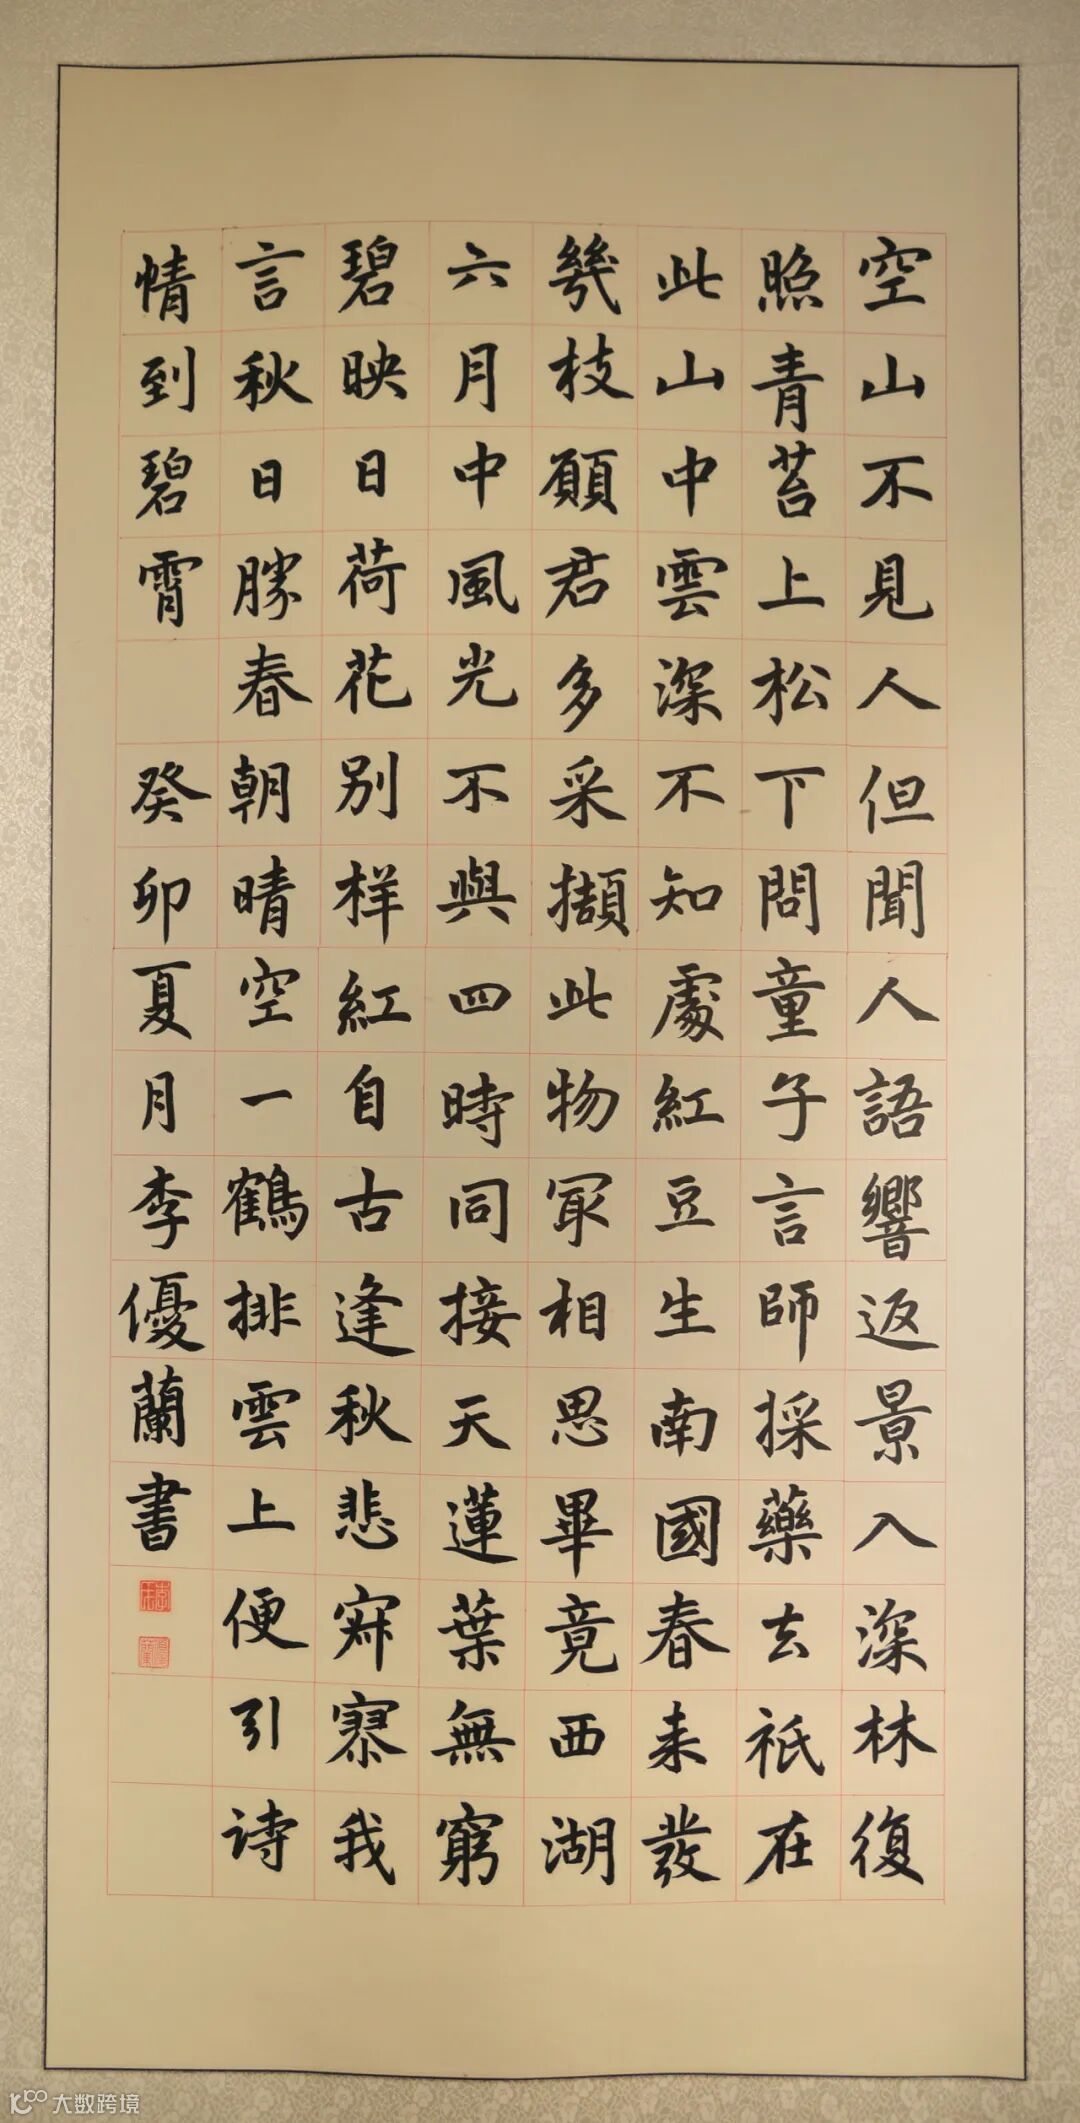 空山不見人但聞人語響返景入深林復
照青苔上松下問童子言師採藥去祇在
此山中雲深不知處紅豆生南國春来發
幾枝願君多采擷此物冣相思畢竟西湖
六月中風光不與四時同接天蓮葉無窮
碧映日荷花别样紅自古逢秋悲寂寥我
言秋日勝春朝晴空一鶴排雲上便引诗
情到碧霄 癸卯夏月李優蘭書
大数跨境